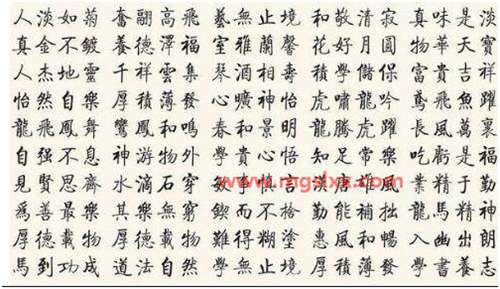 人淡如菊 奮翮高飛 藝無止境 和敬清寂 真味是淡
真金不鍍 養德澤福 室雅蘭馨 花好月圓 物華天寶
人杰地靈 千祥雲集 琴 相壽 積學儲 富貴吉祥
怡然自樂 厚積薄發 曠神怡 虎嘯龍吟 鳶飛魚躍
龍飛鳳舞 鸞鳳和鳴 春和景明 龍騰虎躍 長風萬裏
自强不息 神游物外 學貴心悟 知足常樂 吃虧是福
見賢思齊 水滴石穿 唐雄風 業精于勤
爲善最樂 其樂無窮 鍥而不捨 勤能補拙 龍馬精神
厚德載物 厚德載物 難得糊塗 惠風和暢 入幽出
馬到功成 道法自然 學無止境 厚積薄發 學書養志